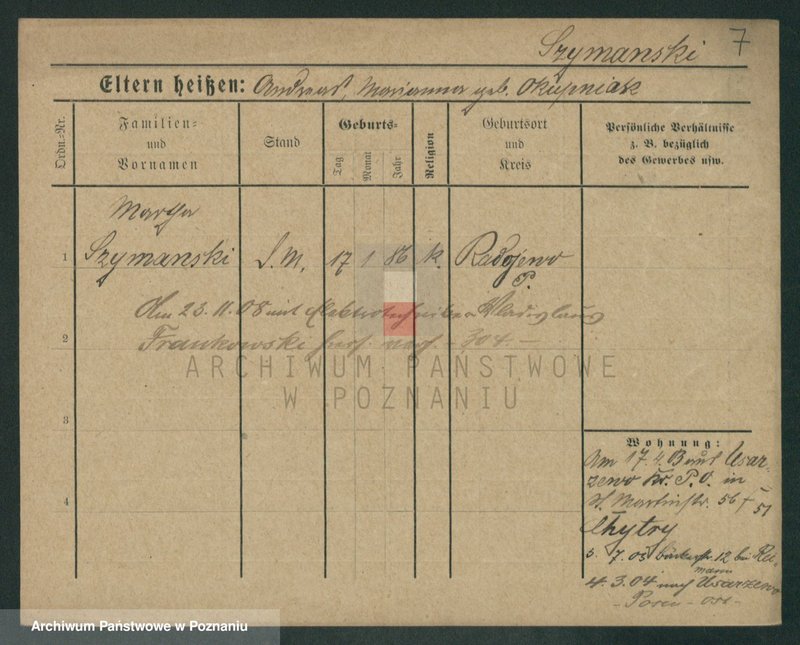 7
Szymanski
Eltern heißen: Andreas, Marianna geb. Okupniak
Ordn.-Nr.
Familien- und Vornamen
Stand
Geburts-
Tag
Monat
Jahr
Religion
Geburtsort und Kreis
Persönliche Verhältnisse
z. B. bezüglich
des Gewerbes usw.
Martha
1 Szymanski S. M. 17 1 86 K. Radojewo
P.
Am 23.11.08 mit Elektrotechniker Wladislaus
2
Frankowski nach - 304 -
ARCHIWUM PAŃSTWOWE
W POZNANIU
3
Wohnung:
Am 17. 4. 03 aus Usar-
zewo Kr. P. O. in
St. Martinstr. 56 + 51
4
Chytry
7. 03 12 bei Rei
mann
4. 3. 04 nach Usarzewo
- Posen - Ost -
Archiwum Państwowe w Poznaniu